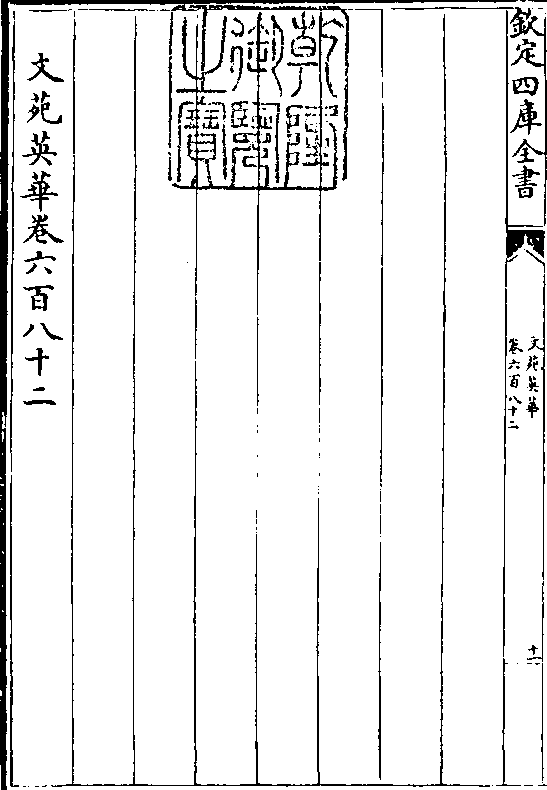 欽定四庫全書
文苑英華
卷六百八十二
十一
乾隆
御覽
之寶
文苑英華卷六百八十二